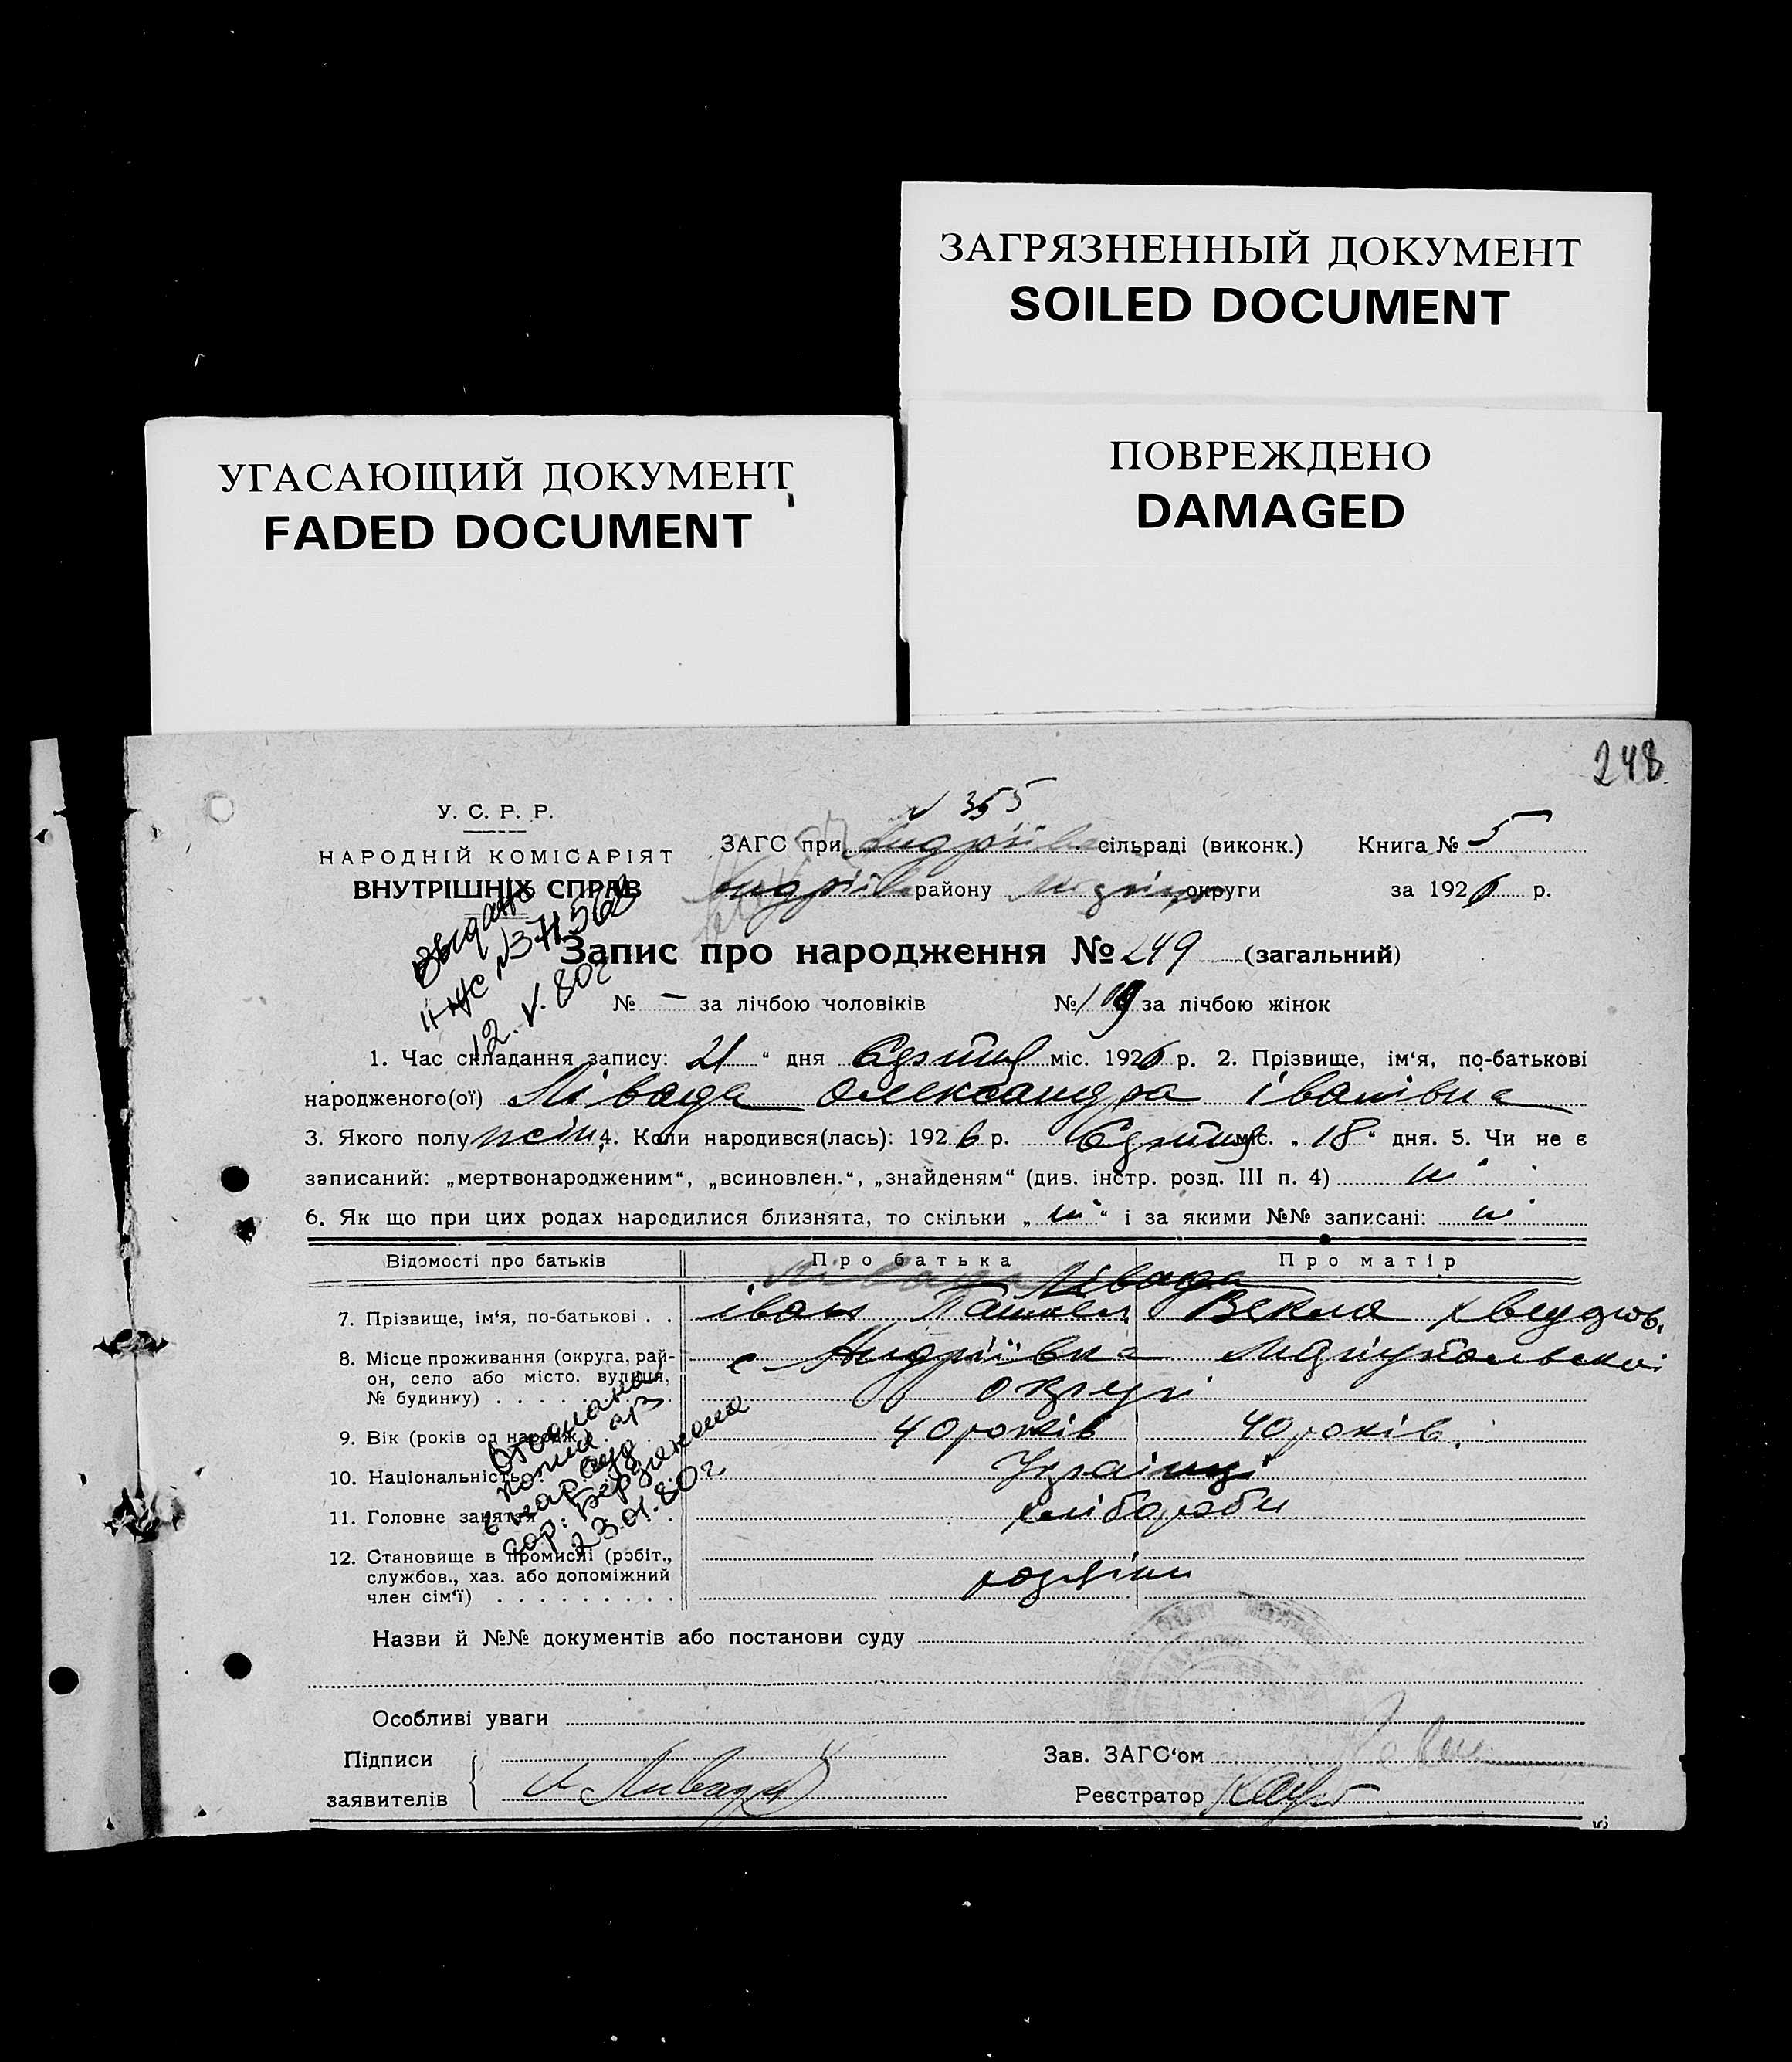 ЗАГРЯЗНЕННЫЙ ДОКУМЕНТ
SOILED DOCUMENT
УГАСАЮЩИЙ ДОКУМЕНТ
FADED DOCUMENT
ПОВРЕЖДЕНО
DAMAGED
248
У. С. Р. Р.
НАРОДНІЙ КОМІСАРІЯТ
ВНУТРІШНІХ СПРАВ
N 355
ЗАГС при Андріівс сільраді (виконк.) Книга № 5
Андріівс району округи за 1926 р.
Видано
II-ЖС №371568
12.V.80г
Запис про народження № 249 (загальний)
№ — за лічбою чоловіків № 109 за лічбою жінок
1. Час складання запису: 21 “ дня міс. 1926 р. 2. Прізвище, ім‘я, по-батькові
народженого(ої) Лівада Олександра Іванівна
3. Якого полу жін. 4. Коли народився(лась): 1926 р. міс. „ 18 “ дня. 5. Чи не є
записаний: „мертвонародженим“, „всиновлен.“, „знайденям“ (див. інстр. розд. III п. 4) ні
6. Як що при цих родах народилися близнята, то скільки „ ні “ і за якими №№ записані: ні
Відомості про батьків Про батька Про матір
Лівада
7. Прізвище, ім‘я, по-батькові . . Іван Векла
8. Місце проживання (округа, рай-
он, село або місто, вулиця,
№ будинку) . . . . . . . . .
с Андріівка Маріупольскоі
округи
9. Вік (років од народж. 40 років 40 років.
10. Національність . Украінці
11. Головне заняття хлібороби
12. Становище в промислі (робіт.,
службов., хаз. або допоміжний
член сім‘ї) . . . . . . . . . .
23.01.80г
Назви й №№ документів або постанови суду
Особливі уваги
Підписи
заявителів
Ливада
Зав. ЗАГС‘ом
Реєстратор